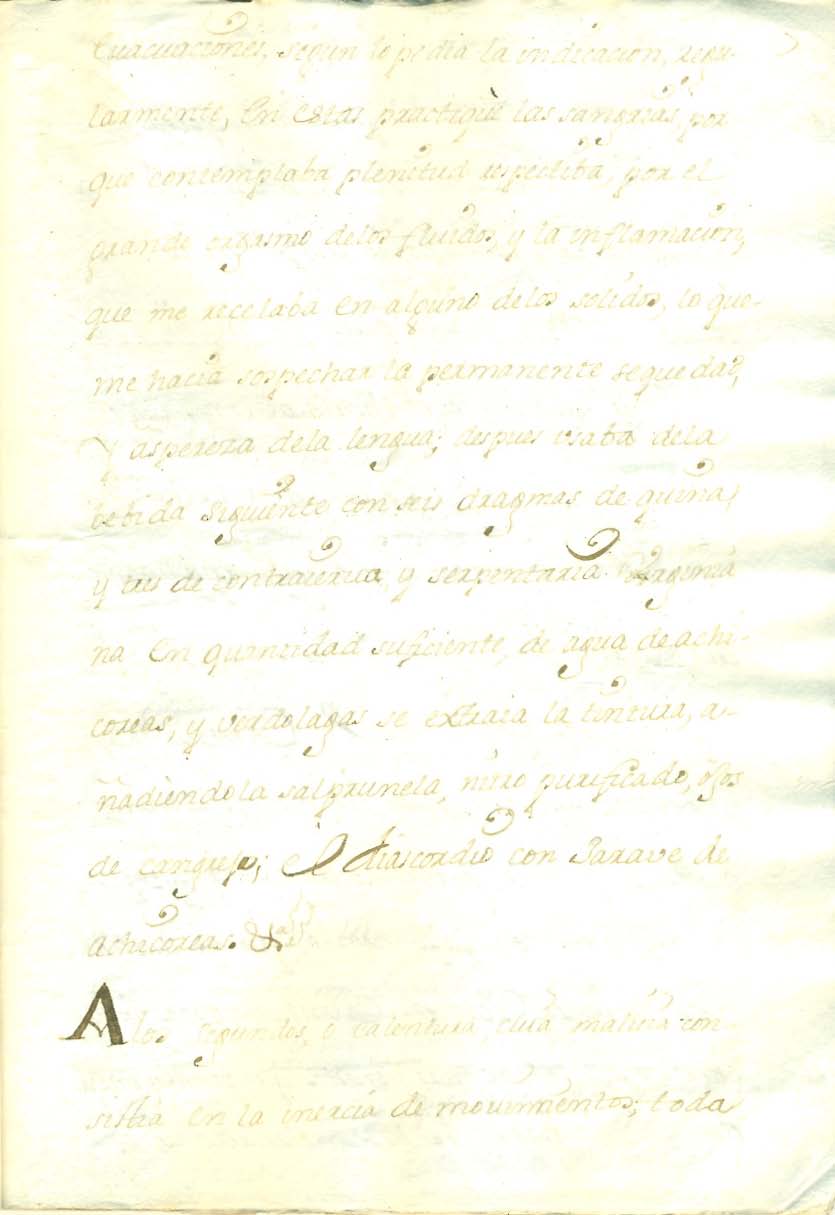 Evacuaciones, segun lo pedia la indicacion, regu-
larmente, En Estas practiquè las sangrias, por
que contemplaba plenitud respectiba, por el
grande orgasmo delos fluidos, y la inflamacion,
que me recelaba en alguno delos solidos, lo que-
me hacia sospechar la permanente sequedad,
Y aspereza dela lengua; despues usaba dela
bebida siguiente con seis dragmas de quina,
y tres de contraierva, y serpentaria Virginia
na En quantidad suficiente, de agua de achi-
coreas, y verdolagas se extraia la tintura, a-
ñadiendo la sal prunela, nitro purificado, ojos
de cangrejo; el diascordio con Jarave de
achicoreas. &a
A los segundos, o calentura cuia malicia con
sistia en la inercia de movimientos; toda